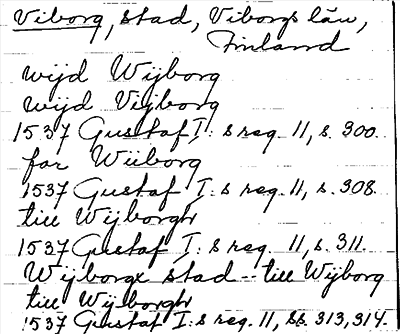 Viborg, stad, Viborgs län,
Finland
wijd Wijborg
wijd Vijborg
1537 Gustaf I:s reg. 11, s. 300.
far Wiiborg
1537 Gustaf I:s reg. 11, s. 308.
till Wijborgh
1537 Gustaf I:s reg. 11, s. 311.
Wijborgx stad - till Wijborg
till Wijborgh
1537 Gustaf I:s reg. 11, ss. 313, 314.